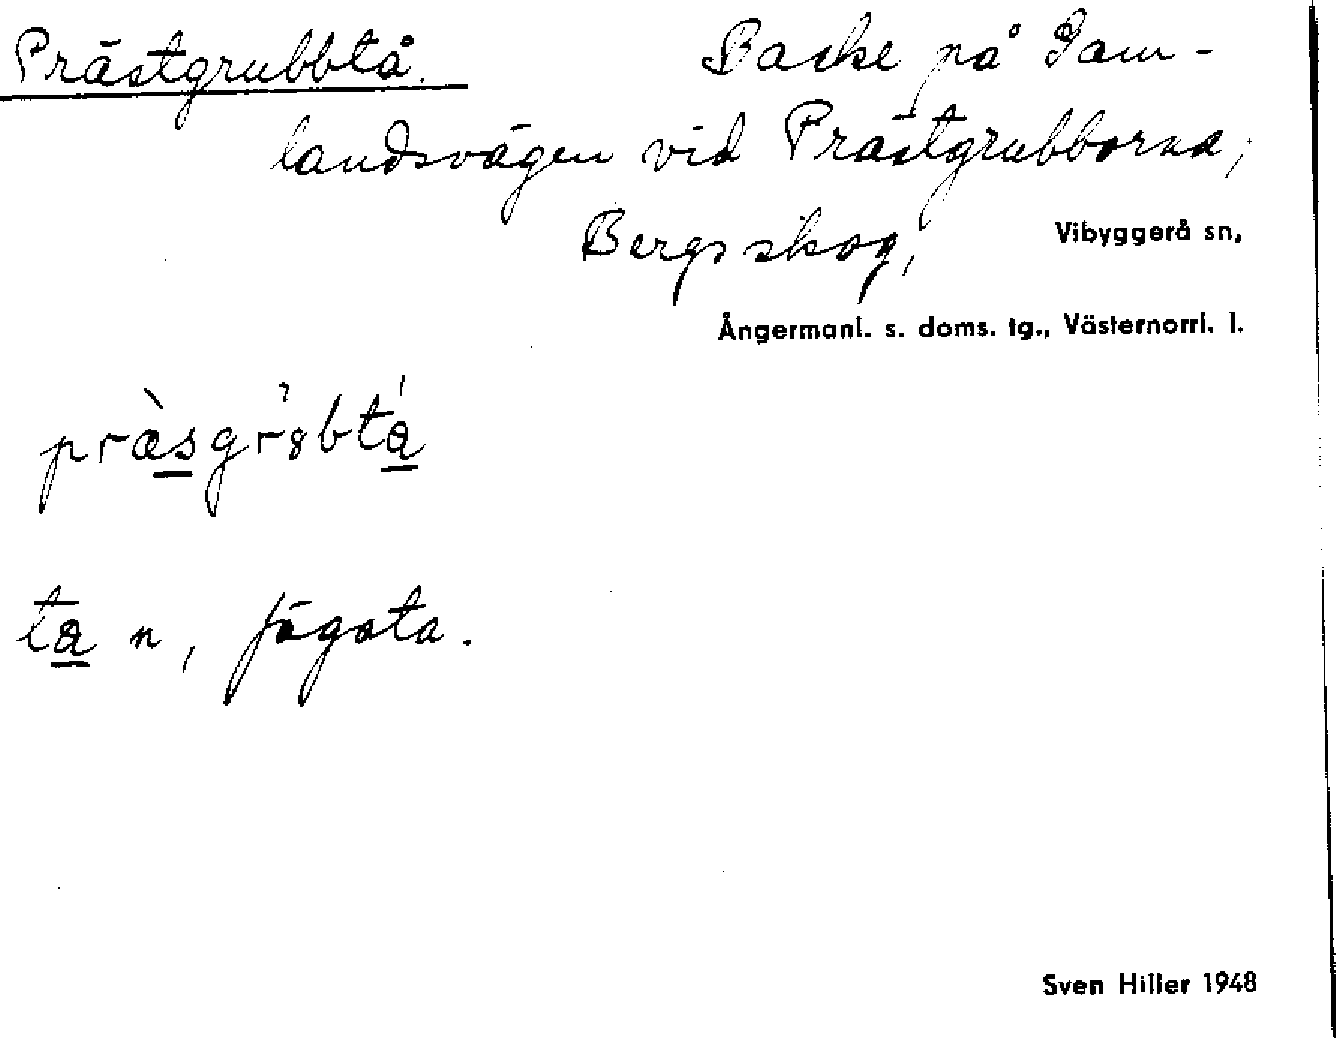 Prästgrubbtå. Backe på Gam-
landsvägen vid Prästgrubborna,
Bergs skog, Vibyggerå sn,
Ångermanl. s. doms. tg., Västernorrl. l.
ta n, fägata.
Sven Hiller 1948